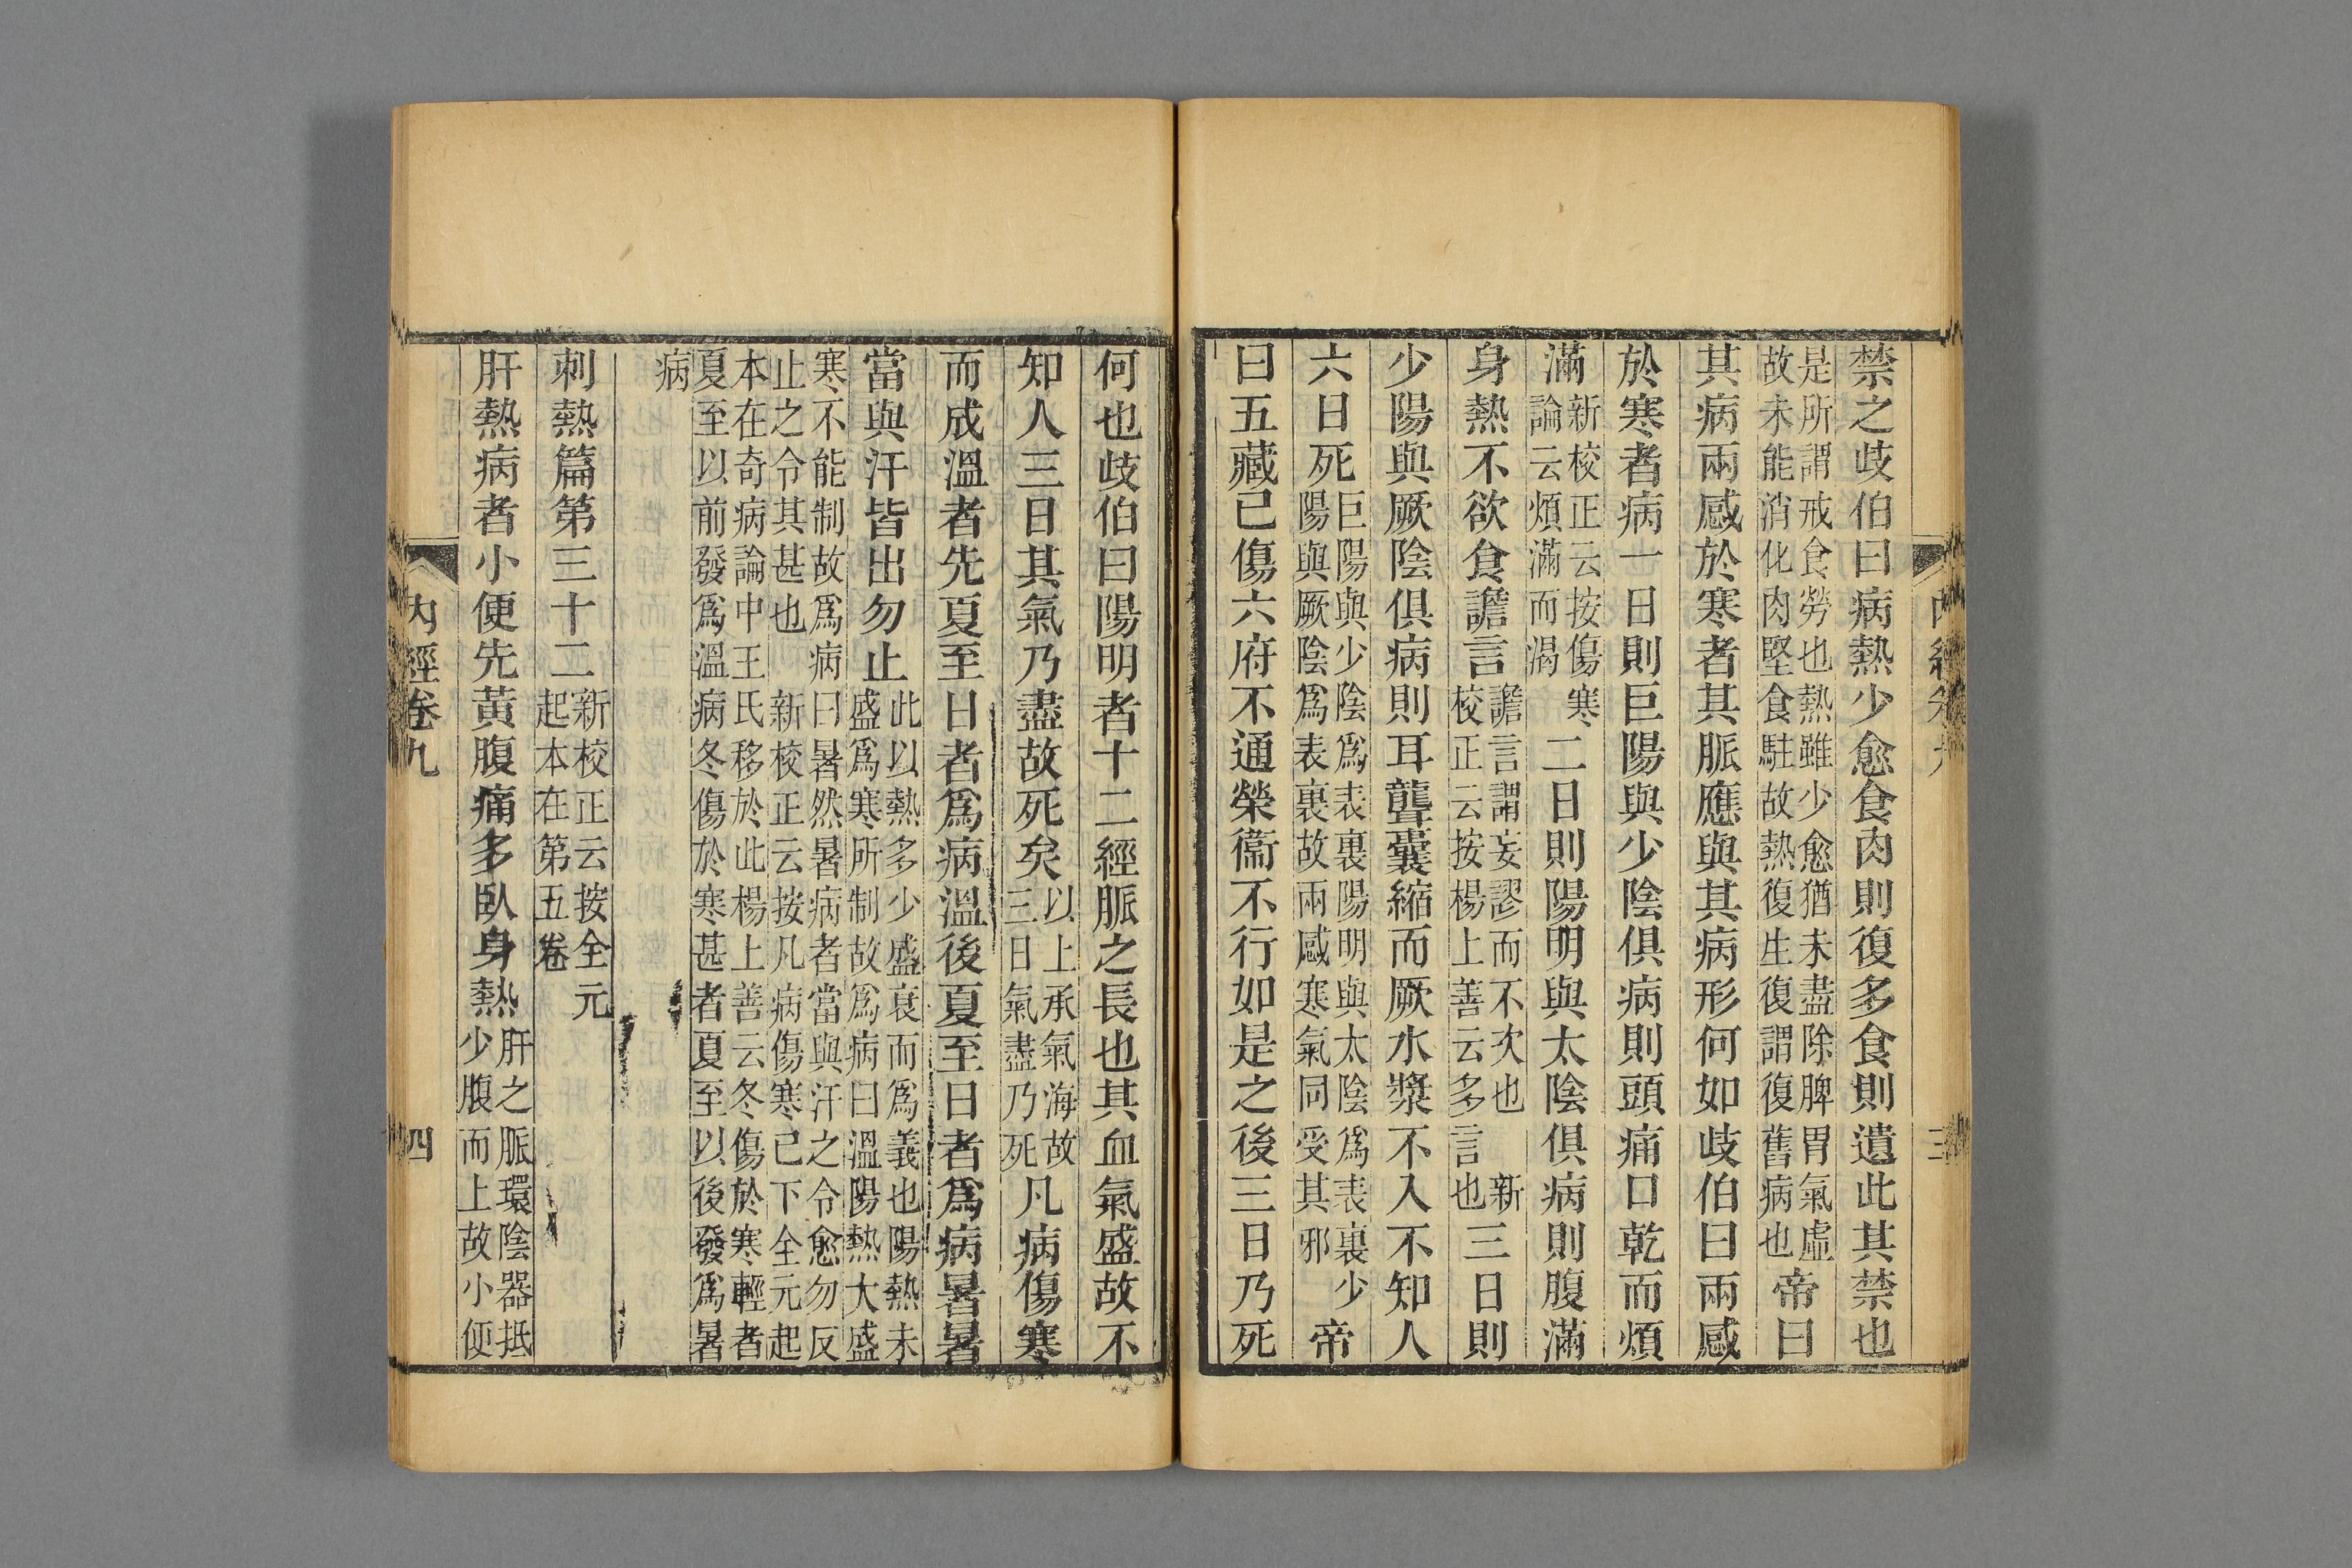 禁之歧伯曰病熱少愈食肉則復多食則遺此其禁也
是所謂戒食勞也熱雖少愈猶未盡除脾胃氣虛故未能消化肉堅食駐故熱復生復謂復舊病也帝曰
其病兩感於寒者其脈應與其病形何如歧伯曰兩感
於寒者病一日則巨陽與少陰俱病則頭痛口乾而煩
滿新校正云按傷寒論云煩滿而渴二日則陽明與太陰俱病則腹滿
身熱不欲食譫言譫言謂妄謬而不次也 新校正云按楊上善云多言也三日則
少陽與厥陰俱病則耳聾囊縮而厥水漿不入不知人
六日死巨陽與少陰爲表裏陽明與太陰爲表裏少陽與厥陰爲表裏故兩感寒氣同受其邪帝
曰五藏已傷六府不通榮衞不行如是之後三日乃死
何也歧伯曰陽明者十二經脈之長也其血氣盛故不
知人三日其氣乃盡故死矣以上承氣海故三日氣盡乃死凡病傷寒
而成溫者先夏至日者爲病溫後夏至日者爲病暑暑
當與汗皆出勿止此以熱多少盛衰而爲義也陽熱未盛爲寒所制故爲病曰溫陽熱大盛
寒不能制故爲病曰暑然暑病者當與汗之令愈勿反
止之令其甚也 新校正云按凡病傷寒已下全元起
本在奇病論中王氏移於此楊上善云冬傷於寒輕者
夏至以前發爲溫病冬傷於寒甚者夏至以後發爲暑
病
刺熱篇第三十二新校正云按全元起本在第五卷
肝熱病者小便先黃腹痛多臥身熱肝之脈環陰器抵少腹而上故小便
内經卷九 四